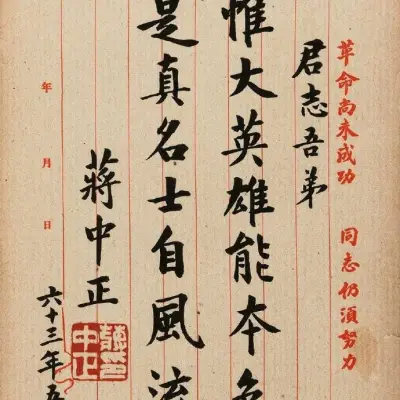 革命尚未成功 同志仍須努力
君志吾弟
惟大英雄能本色
是真名士自風流
蔣中正
六十三年五
年 月 日
中正